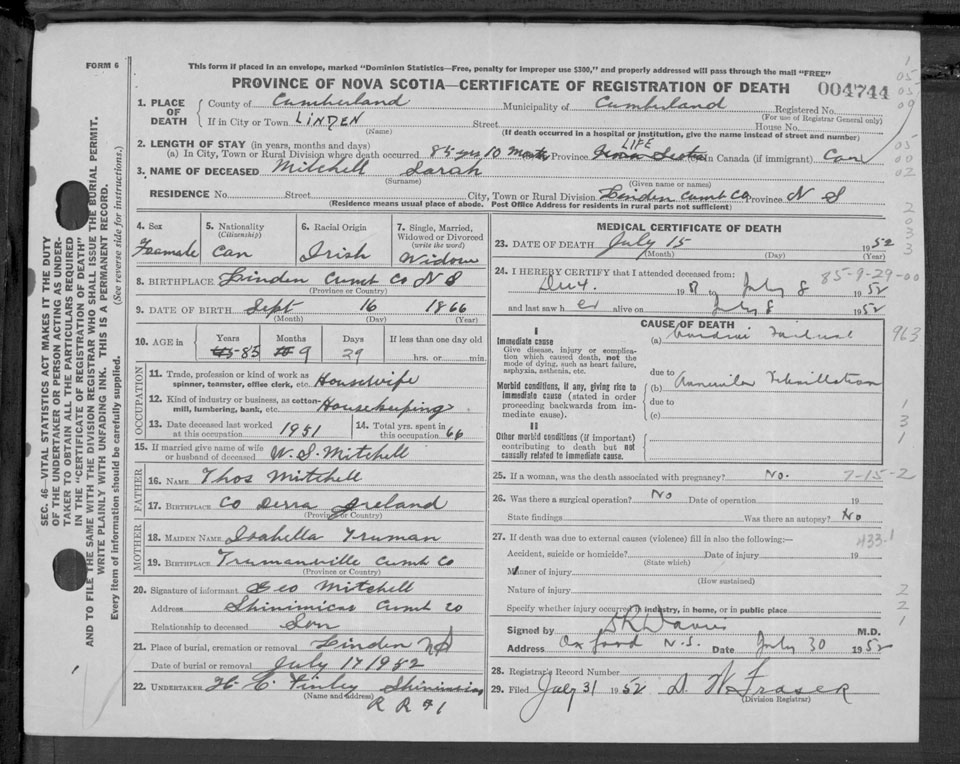 FORM 6
This form if placed in an envelope, marked "Dominion Statistics—Free, penalty for improper use $300," and properly addressed will pass through the mail "FREE"
PROVINCE OF NOVA SCOTIA—CERTIFICATE OF REGISTRATION OF DEATH 004744
1. PLACE OF DEATH
County of Cumberland Municipality of Cumberland Registered No.
(For use of Registrar General only)
If in City or Town LINDEN Street House No.
(Name) (If death occurred in a hospital or institution, give the name instead of street and number)
2. LENGTH OF STAY (in years, months and days) LIFE
(a) In City, Town or Rural Division where death occurred 85 yrs 10 Month Province Nova Scotia In Canada (if immigrant) Can
3. NAME OF DECEASED Mitchell Sarah
(Surname) (Given name or names)
RESIDENCE No. Street City, Town or Rural Division Linden Cumb Co Province N S
(Residence means usual place of abode. Post Office Address for residents in rural parts not sufficient)
4. Sex 5. Nationality 6. Racial Origin 7. Single, Married, Widowed or Divorced
(Citizenship) (write the word)
Feamale Can Irish Widow
8. BIRTHPLACE Linden Cumb Co N S
(Province or Country)
9. DATE OF BIRTH Sept 16 1866
(Month) (Day) (Year)
10. AGE in Years Months Days If less than one day old
85 9 29 hrs. or min.
OCCUPATION
11. Trade, profession or kind of work as spinner, teamster, office clerk, etc. Housewife
12. Kind of industry or business, as cotton-mill, lumbering, bank, etc. Housekeeping
13. Date deceased last worked at this occupation 1951 14. Total yrs. spent in this occupation 66
15. If married give name of wife or husband of deceased W. S. Mitchell
FATHER
16. NAME Thos Mitchell
17. BIRTHPLACE Co Derra Ireland
(Province or Country)
MOTHER
18. MAIDEN NAME Isabella Truman
19. BIRTHPLACE Trumanville Cumb Co
(Province or Country)
20. Signature of informant Geo Mitchell
Address Shinimicas Cumb Co
Relationship to deceased Son
21. Place of burial, cremation or removal Linden NS
Date of burial or removal July 17 1952
22. UNDERTAKER H. C. Finley Shinimicas
(Name and address)
R R #1
MEDICAL CERTIFICATE OF DEATH
23. DATE OF DEATH July 15 1952
(Month) (Day) (Year)
24. I HEREBY CERTIFY that I attended deceased from: 85-9-29-00
19 to July 8 1952
and last saw h er alive on July 8 1952
CAUSE OF DEATH
I
Immediate cause
Give disease, injury or complication which caused death, not the mode of dying, such as heart failure, asphyxia, asthenia, etc.
(a)
due to
Morbid conditions, if any, giving rise to immediate cause (stated in order proceeding backwards from immediate cause).
(b) Auricular Fibrillation
due to
(c)
II
Other morbid conditions (if important) contributing to death but not causally related to immediate cause.
963
25. If a woman, was the death associated with pregnancy? No. 7-15-2
26. Was there a surgical operation? No Date of operation 19
State findings Was there an autopsy? No
27. If death was due to external causes (violence) fill in also the following:— 433.1
Accident, suicide or homicide? Date of injury 19
(State which)
Manner of injury
(How sustained)
Nature of injury
Specify whether injury occurred in industry, in home, or in public place
Signed by Davis M.D.
Address Oxford N.S. Date July 30 1952
28. Registrar's Record Number
29. Filed July 31 1952 D. W. Fraser
(Division Registrar)
SEC. 46—VITAL STATISTICS ACT MAKES IT THE DUTY
OF THE UNDERTAKER OR PERSON ACTING AS UNDER-
TAKER TO OBTAIN ALL THE PARTICULARS REQUIRED
IN THE "CERTIFICATE OF REGISTRATION OF DEATH"
AND TO FILE THE SAME WITH THE DIVISION REGISTRAR WHO SHALL ISSUE THE BURIAL PERMIT.
WRITE PLAINLY WITH UNFADING INK. THIS IS A PERMANENT RECORD.
Every item of information should be carefully supplied. (See reverse side for instructions.)